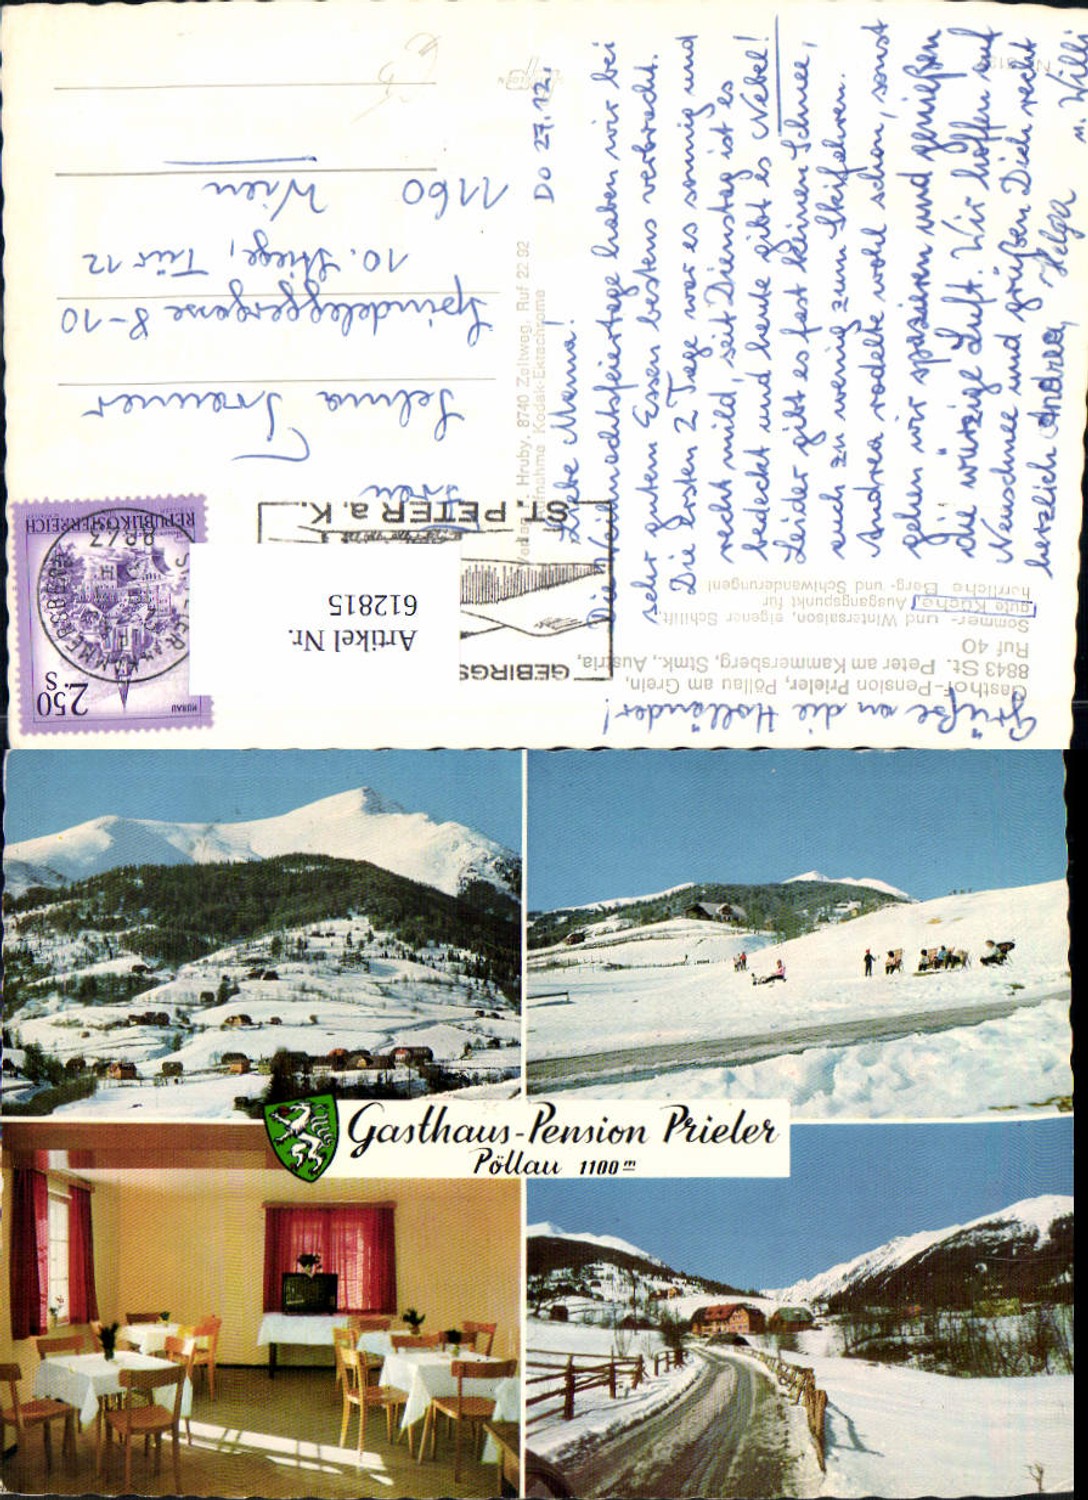 Gasthof-Pension Prieler, Pöllau am Grein,
8843 St. Peter am Kammersberg, Stmk., Austria,
Ruf 40
Sommer- und Wintersaison, eigener Schilift,
gute Küche, Ausgangspunkt für
herrliche Berg- und Schiwanderungen!
Grüße an die Holländer!
Do 27.12.
Liebe Mama!
Die Weihnachtsfeiertage haben wir bei
sehr gutem Essen bestens verbracht.
Die ersten 2 Tage war es sonnig und
recht mild, seit Dienstag ist es
bedeckt und heute gibt es Nebel!
Leider gibt es fast keinen Schnee,
auch zu wenig zum Skifahren.
Andrea rodelte wohl schon, sonst
gehen wir spazieren und genießen
die würzige Luft. Wir hoffen auf
Neuschnee und grüßen Dich recht
herzlich Andrea, Helga u. Willi
Hruby, 8740 Zeltweg, Ruf 22 92
Kodak-Ektachrome
GEBIRGS
ST. PETER a. K.
Artikel Nr.
612815
MURAU
2.50
S
REPUBLIK ÖSTERREICH
8843
Selma
10. Stiege, Tür 12
1160
Wien
Gasthaus-Pension Prieler
Pöllau 1100 m